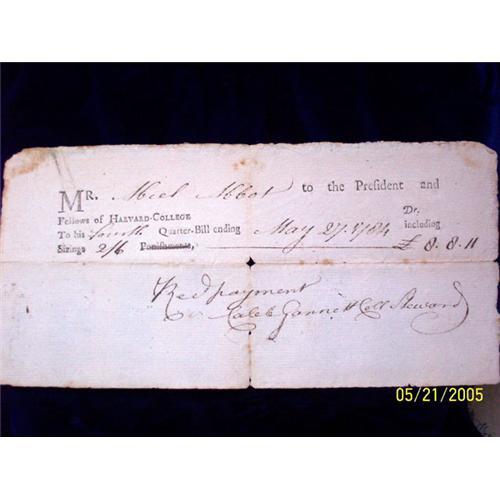 MR. Abiel Abbot to the President and
Fellows of HARVARD-COLLEGE Dr.
To his fourth Quarter-Bill ending May 27. 1784 including
Sizings 2/6 Punishments, £ 8. 8. 11
Recd payment
Caleb Gannett Coll Steward
05/21/2005